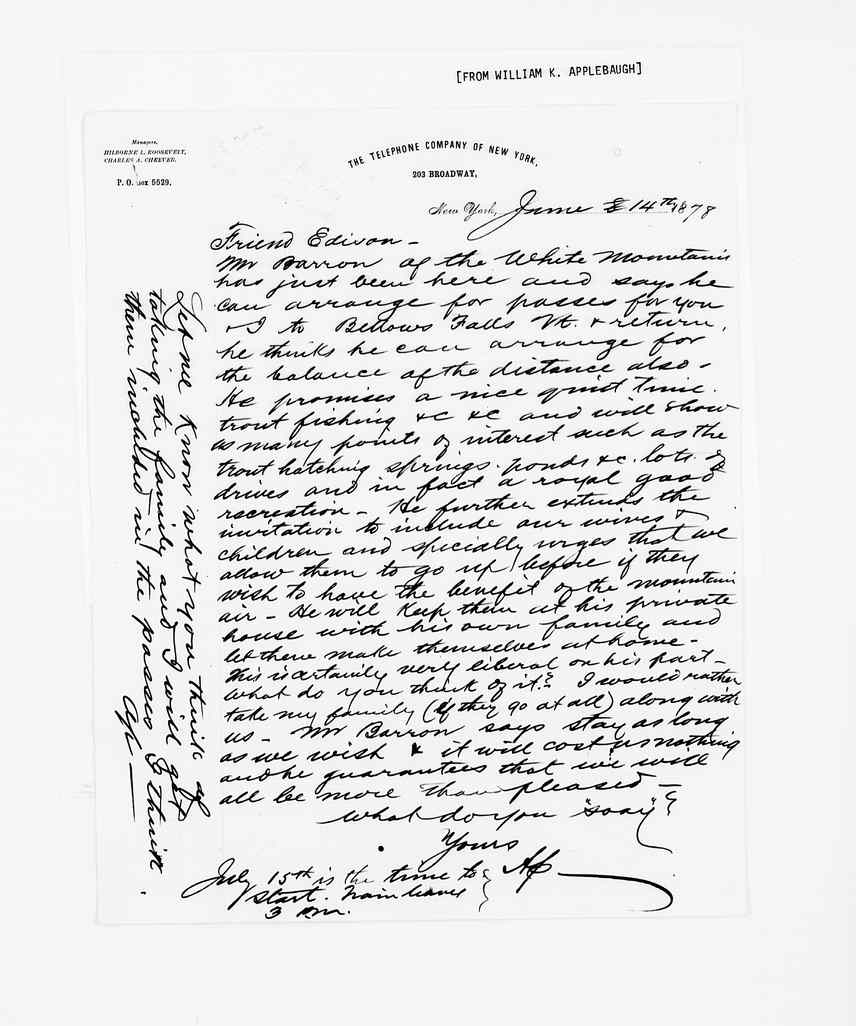 [FROM WILLIAM K. APPLEBAUGH]
Managers,
HILBORNE L. ROOSEVELT,
CHARLES A. CHEEVER.
P. O. Box 5529.
THE TELEPHONE COMPANY OF NEW YORK,
203 BROADWAY,
New York, June 14th 1878
Friend Edison -
Mr Barron of the White Mountains
has just been here and says he
can arrange for passes for you
& I to Bellows Falls Vt. & return,
he thinks he can arrange for
the balance of the distance also -
He promises a nice quiet time.
trout fishing &c &c and will show
as many points of interest such as the
trout hatching springs. ponds &c. lots of
drives and in fact a royal good
recreation - He further extends the
invitation to include our wives &
children and specially urges that we
allow them to go up before if they
wish to have the benefit of the mountain
air - He will keep them at his private
house with his own family and
let them make themselves at home -
this is certainly very liberal on his part -
what do you think of it? I would rather
take my family (if they go at all) along with
us - Mr Barron says stay as long
as we wish & it will cost us nothing
and he guarantees that we will
all be more than pleased -
what do you "say"?
Yours
Ap
July 15th is the time to
start. Train leaves
3 P.m.
Let me know what you think of
taking the family and I will get
them included in the passes I think
Ap